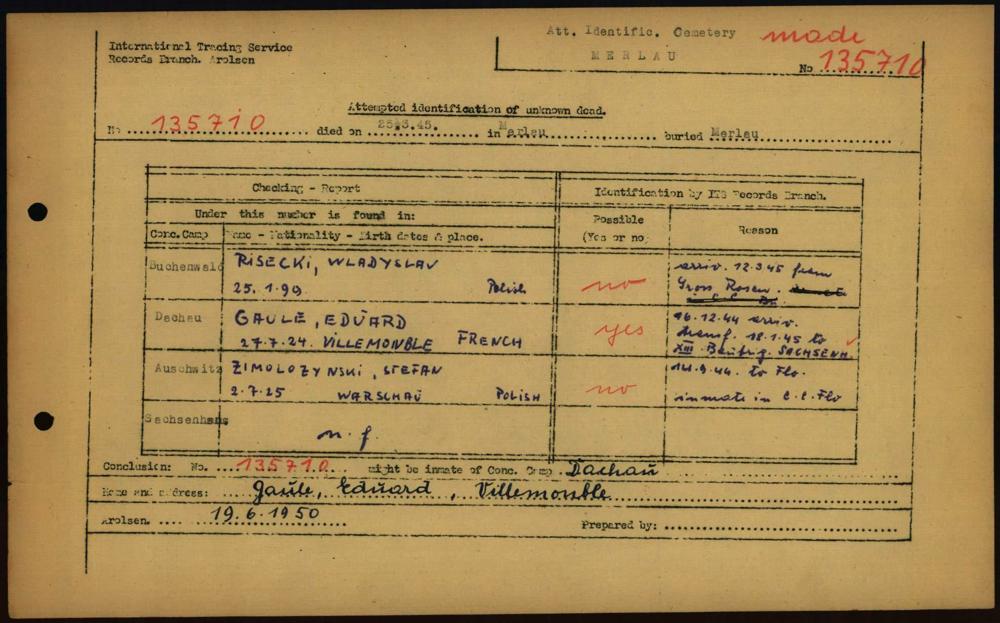 Att. Identific. Cemetery made
International Tracing Service
Records Branch. Arolsen
MERLAU
No 135710
Attempted identification of unknown dead.
No 135710 died on 25.3.45. in Merlau buried Merlau
Checking - Report
Identification by ITS Records Branch.
Under this number is found in:
Possible
(Yes or no)
Reason
Conc.Camp Name - Nationality - Birth dates & place.
Buchenwald RISECKI, WLADYSLAV
25.1.99 Polish
no
arriv. 12.3.45 from
Gross Rosen.
Dachau GAULE, EDUARD
27.7.24. VILLEMONBLE FRENCH
yes
16.12.44 arriv.
transf. 18.1.45 to
SACHSENH.
Auschwitz ZIMOLOZYNSKI, STEFAN
2.7.25 WARSCHAU POLISH
no
14.9.44. to Flo.
inmate in C.C. Flo
Sachsenhaus
n.f.
Conclusion: No. 135710 might be inmate of Conc. Camp Dachau
Name and address: Gaule, Eduard, Villemonble
Arolsen. 19.6.1950
Prepared by: